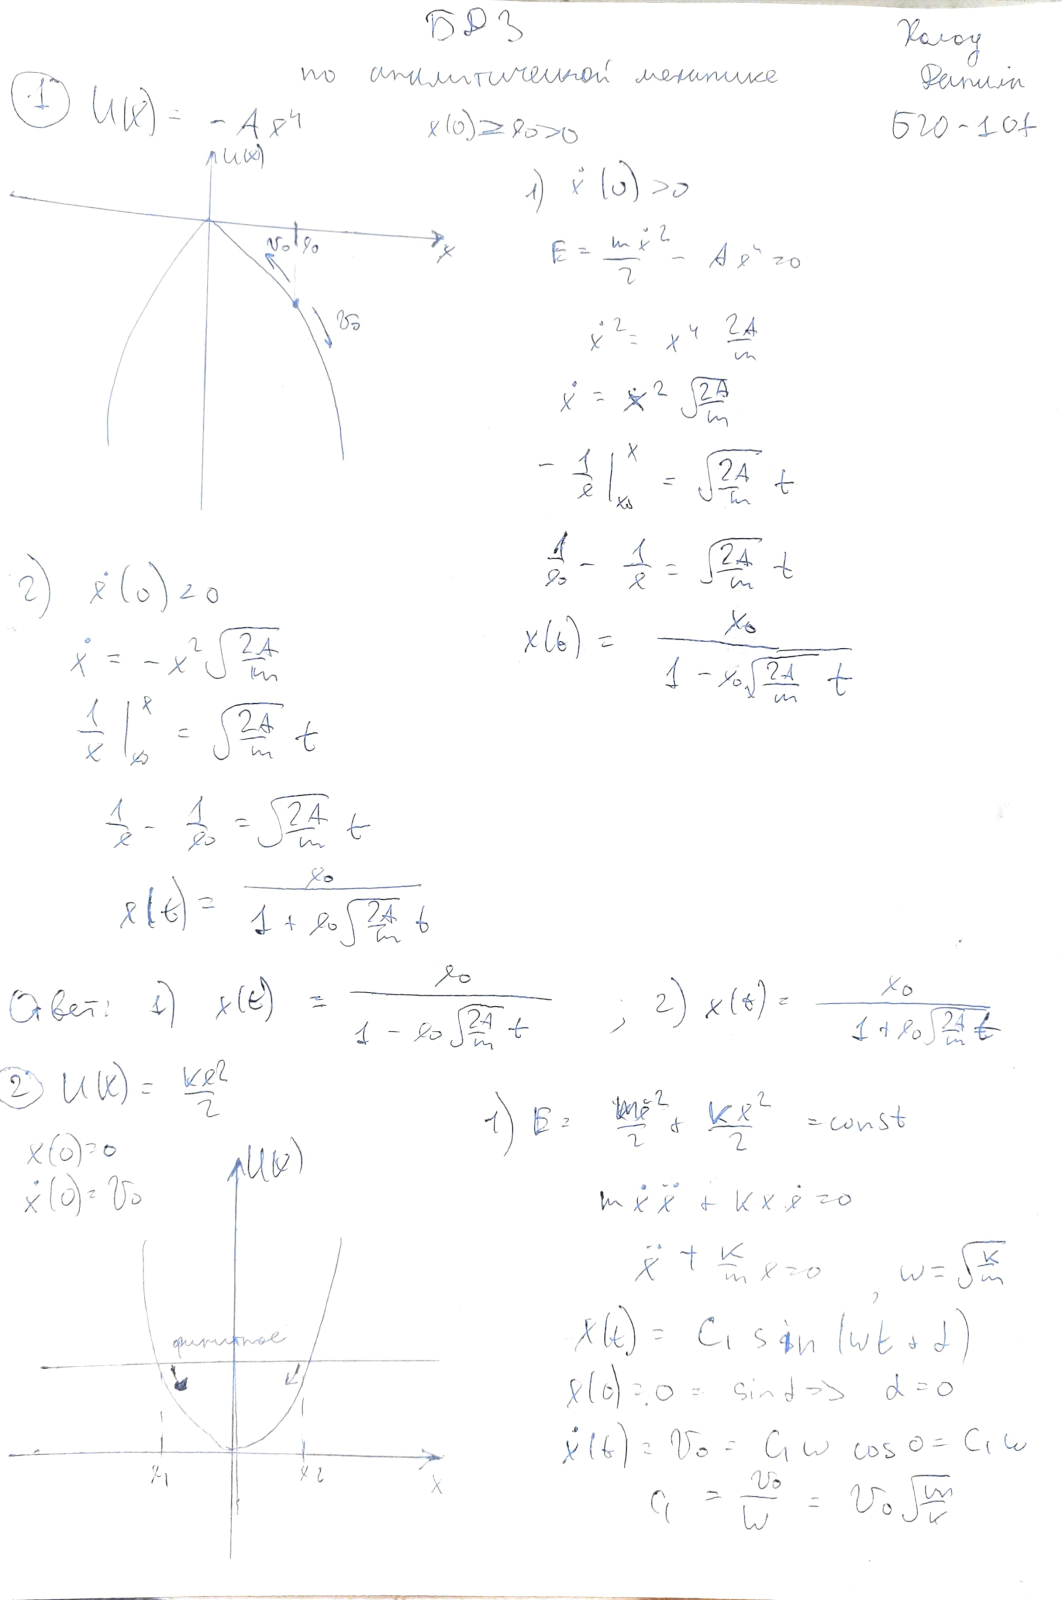 БДЗ
по аналитической механике
Холод
Даниил
Б20-101
1 U(x) = -Ax⁴
x(0) = x₀ > 0
U(x)
v₀ x₀
x
v₀
1) ẋ(0) > 0
E = mẋ²/2 - Ax⁴ = 0
ẋ² = x⁴ 2A/m
ẋ = x² √(2A/m)
- 1/x |ₓ₀ˣ = √(2A/m) t
1/x₀ - 1/x = √(2A/m) t
x(t) = x₀/(1 - x₀√(2A/m) t)
2) ẋ(0) < 0
ẋ = -x² √(2A/m)
1/x |ₓ₀ˣ = √(2A/m) t
1/x - 1/x₀ = √(2A/m) t
x(t) = x₀/(1 + x₀√(2A/m) t)
Ответ: 1) x(t) = x₀/(1 - x₀√(2A/m) t) ; 2) x(t) = x₀/(1 + x₀√(2A/m) t)
2 U(x) = kx²/2
x(0) = 0
ẋ(0) = v₀
U(x)
финитное
x₁ x₂ x
1) E = mẋ²/2 + kx²/2 = const
mẋẍ + kxẋ = 0
ẍ + k/m x = 0 , w = √(k/m)
x(t) = C₁ sin (wt + α)
x(0) = 0 = sin α => α = 0
ẋ(t) = v₀ = C₁w cos 0 = C₁w
C₁ = v₀/w = v₀ √(m/k)